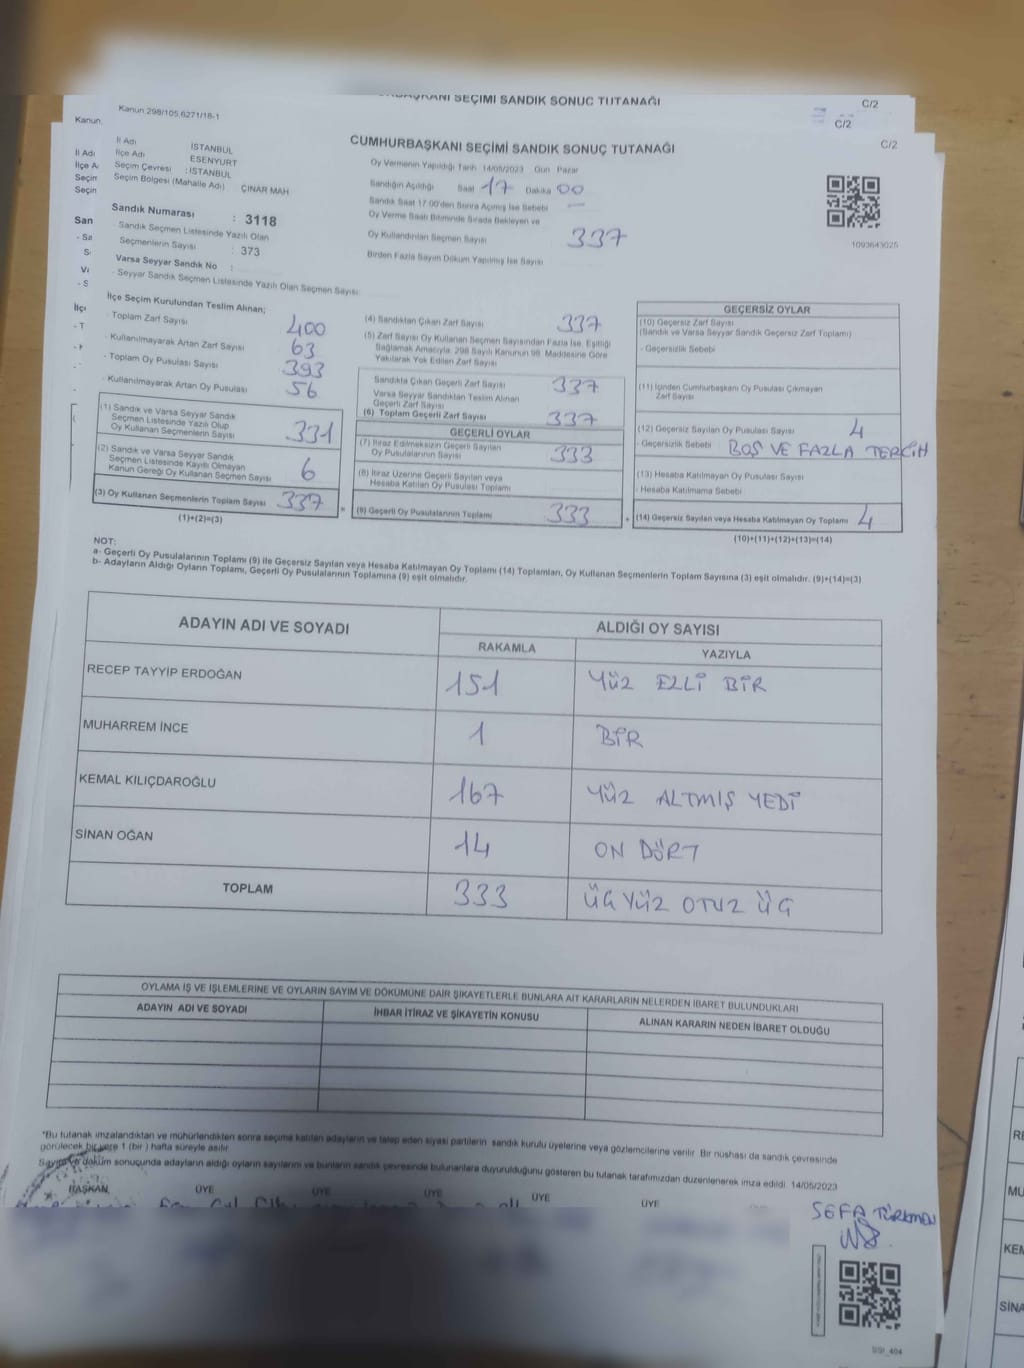 CUMHURBAŞKANI SEÇİMİ SANDIK SONUÇ TUTANAĞI
C/2
C/2
C/2
Kanun 298/105,6271/18-1
Kanun,
İl Adı İSTANBUL
İlçe Adı ESENYURT
Seçim Çevresi : İSTANBUL
Seçim Bölgesi (Mahalle Adı) ÇINAR MAH
Sandık Numarası : 3118
- Sandık Seçmen Listesinde Yazılı Olan
Seçmenlerin Sayısı : 373
Varsa Seyyar Sandık No :
- Seyyar Sandık Seçmen Listesinde Yazılı Olan Seçmen Sayısı
CUMHURBAŞKANI SEÇİMİ SANDIK SONUÇ TUTANAĞI
Oy Vermenin Yapıldığı Tarih 14/05/2023 Gün Pazar
Sandığın Açıldığı Saat 17 Dakika 00
Sandık Saat 17:00'den Sonra Açılmış İse Sebebi —
Oy Verme Saati Bitiminde Sırada Bekleyen ve
Oy Kullandırılan Seçmen Sayısı 337
Birden Fazla Sayım Döküm Yapılmış İse Sayısı
1093643025
İlçe Seçim Kurulundan Teslim Alınan;
- Toplam Zarf Sayısı 400
- Kullanılmayarak Artan Zarf Sayısı 63
- Toplam Oy Pusulası Sayısı 393
- Kullanılmayarak Artan Oy Pusulası 56
(1) Sandık ve Varsa Seyyar Sandık
Seçmen Listesinde Yazılı Olup
Oy Kullanan Seçmenlerin Sayısı 331
(2) Sandık ve Varsa Seyyar Sandık
Seçmen Listesinde Kayıtlı Olmayan
Kanun Gereği Oy Kullanan Seçmen Sayısı 6
(3) Oy Kullanan Seçmenlerin Toplam Sayısı 337
(1)+(2)=(3)
(4) Sandıktan Çıkan Zarf Sayısı 337
(5) Zarf Sayısı Oy Kullanan Seçmen Sayısından Fazla İse, Eşitliği
Sağlamak Amacıyla, 298 Sayılı Kanunun 98. Maddesine Göre
Yakılarak Yok Edilen Zarf Sayısı
Sandıkta Çıkan Geçerli Zarf Sayısı 337
Varsa Seyyar Sandıktan Teslim Alınan
Geçerli Zarf Sayısı
(6) Toplam Geçerli Zarf Sayısı 337
GEÇERLİ OYLAR
(7) İtiraz Edilmeksizin Geçerli Sayılan
Oy Pusulalarının Sayısı 333
(8) İtiraz Üzerine Geçerli Sayılan veya
Hesaba Katılan Oy Pusulası Toplamı
(9) Geçerli Oy Pusulalarının Toplamı 333
GEÇERSİZ OYLAR
(10) Geçersiz Zarf Sayısı
(Sandık ve Varsa Seyyar Sandık Geçersiz Zarf Toplamı)
- Geçersizlik Sebebi
(11) İçinden Cumhurbaşkanı Oy Pusulası Çıkmayan
Zarf Sayısı
(12) Geçersiz Sayılan Oy Pusulası Sayısı 4
- Geçersizlik Sebebi BOŞ VE FAZLA TERCİH
(13) Hesaba Katılmayan Oy Pusulası Sayısı
- Hesaba Katılmama Sebebi
(14) Geçersiz Sayılan veya Hesaba Katılmayan Oy Toplamı 4
(10)+(11)+(12)+(13)=(14)
NOT:
a- Geçerli Oy Pusulalarının Toplamı (9) ile Geçersiz Sayılan veya Hesaba Katılmayan Oy Toplamı (14) Toplamları, Oy Kullanan Seçmenlerin Toplam Sayısına (3) eşit olmalıdır. (9)+(14)=(3)
b- Adayların Aldığı Oyların Toplamı, Geçerli Oy Pusulalarının Toplamına (9) eşit olmalıdır.
ADAYIN ADI VE SOYADI ALDIĞI OY SAYISI
RAKAMLA YAZIYLA
RECEP TAYYİP ERDOĞAN 151 YÜZ ELLİ BİR
MUHARREM İNCE 1 BİR
KEMAL KILIÇDAROĞLU 167 YÜZ ALTMIŞ YEDİ
SİNAN OĞAN 14 ON DÖRT
TOPLAM 333 ÜÇ YÜZ OTUZ ÜÇ
OYLAMA İŞ VE İŞLEMLERİNE VE OYLARIN SAYIM VE DÖKÜMÜNE DAİR ŞİKAYETLERLE BUNLARA AİT KARARLARIN NELERDEN İBARET BULUNDUKLARI
ADAYIN ADI VE SOYADI İHBAR İTİRAZ VE ŞİKAYETİN KONUSU ALINAN KARARIN NEDEN İBARET OLDUĞU
*Bu tutanak imzalandıktan ve mühürlendikten sonra seçime katılan adayların ve talep eden siyasi partilerin sandık kurulu üyelerine veya gözlemcilerine verilir. Bir nüshası da sandık çevresinde
görülecek bir yere 1 (bir) hafta süreyle asılır
Sayım ve döküm sonucunda adayların aldığı oyların sayılarını ve bunların sandık çevresinde bulunanlara duyurulduğunu gösteren bu tutanak tarafımızdan düzenlenerek imza edildi. 14/05/2023
BAŞKAN ÜYE ÜYE ÜYE ÜYE ÜYE
SEFA TÜRKMEN